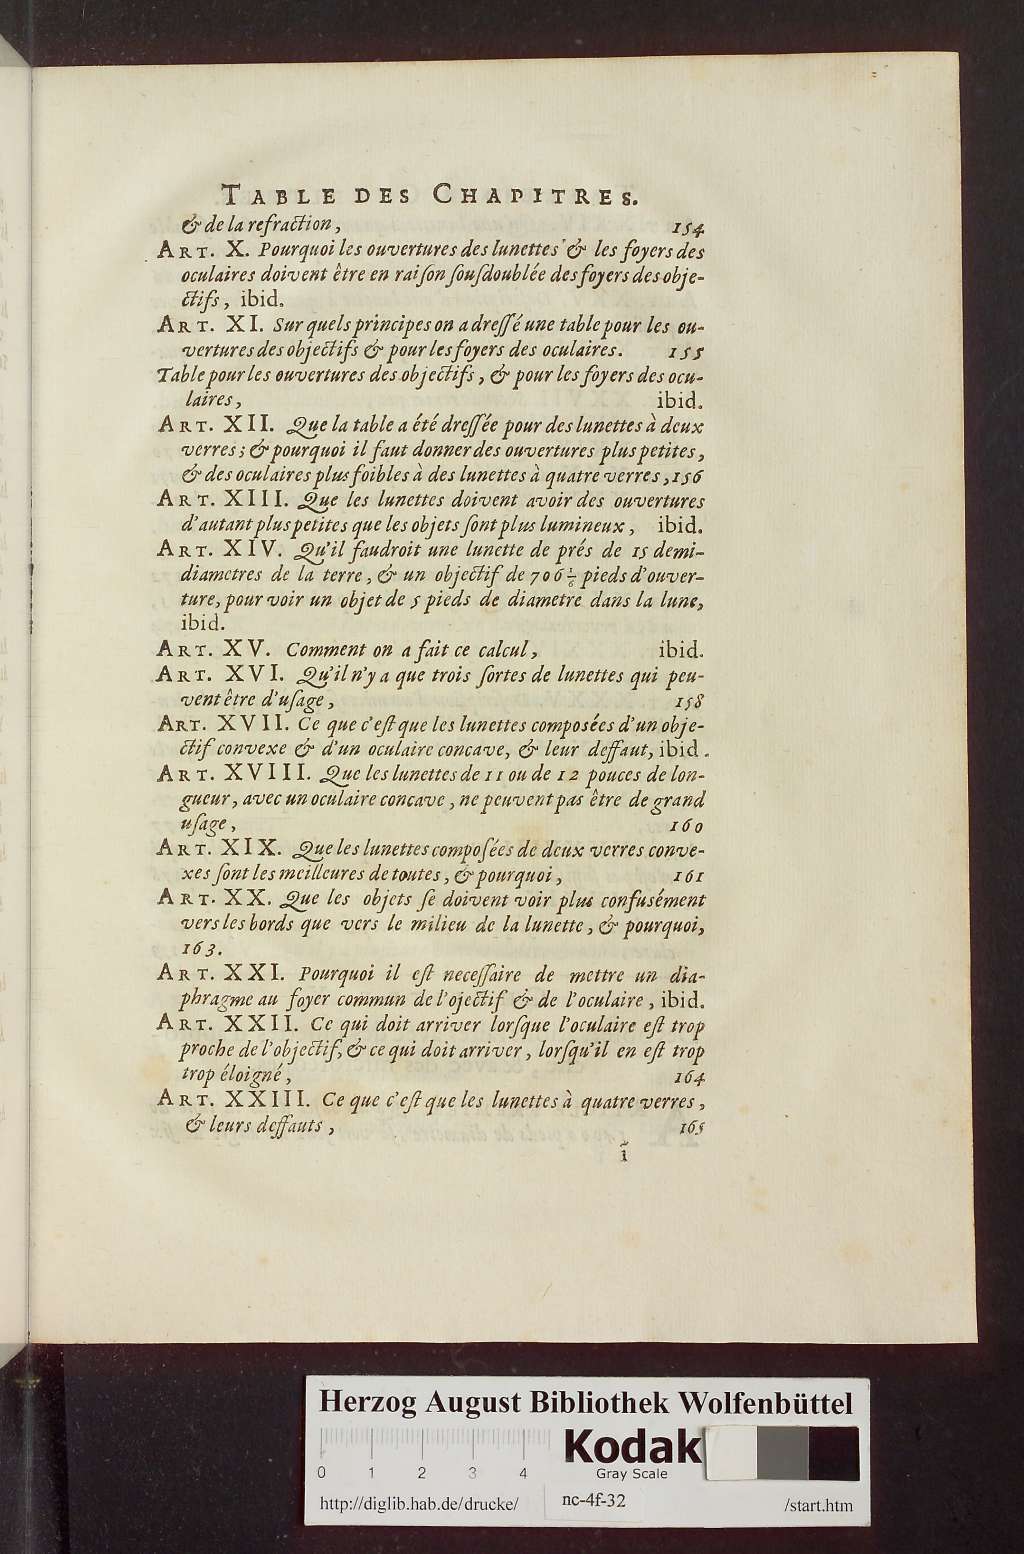 TABLE DES CHAPITRES.
& de la refraction, 154
ART. X. Pourquoi les ouvertures des lunettes & les foyers des
oculaires doivent être en raiſon ſouſdoublée des foyers des obje-
ctifs, ibid.
ART. XI. Sur quels principes on a dreſſé une table pour les ou-
vertures des objectifs & pour les foyers des oculaires. 155
Table pour les ouvertures des objectifs, & pour les foyers des ocu-
laires, ibid.
ART. XII. Que la table a été dreſſée pour des lunettes à deux
verres; & pourquoi il faut donner des ouvertures plus petites,
& des oculaires plus foibles à des lunettes à quatre verres, 156
ART. XIII. Que les lunettes doivent avoir des ouvertures
d'autant plus petites que les objets ſont plus lumineux, ibid.
ART. XIV. Qu'il faudroit une lunette de prés de 15 demi-
diametres de la terre, & un objectif de 706 1/6 pieds d'ouver-
ture, pour voir un objet de 5 pieds de diametre dans la lune,
ibid.
ART. XV. Comment on a fait ce calcul, ibid.
ART. XVI. Qu'il n'y a que trois ſortes de lunettes qui peu-
vent être d'uſage, 158
ART. XVII. Ce que c'eſt que les lunettes composées d'un obje-
ctif convexe & d'un oculaire concave, & leur deffaut, ibid.
ART. XVIII. Que les lunettes de 11 ou de 12 pouces de lon-
gueur, avec un oculaire concave, ne peuvent pas être de grand
uſage, 160
ART. XIX. Que les lunettes compoſées de deux verres conve-
xes ſont les meilleures de toutes, & pourquoi, 161
ART. XX. Que les objets ſe doivent voir plus confusément
vers les bords que vers le milieu de la lunette, & pourquoi,
163.
ART. XXI. Pourquoi il eſt neceſſaire de mettre un dia-
phragme au foyer commun de l'ojectif & de l'oculaire, ibid.
ART. XXII. Ce qui doit arriver lorſque l'oculaire eſt trop
proche de l'objectif, & ce qui doit arriver, lorſqu'il en eſt trop
trop éloigné, 164
ART. XXIII. Ce que c'eſt que les lunettes à quatre verres,
& leurs deffauts, 165
ĩ
Herzog August Bibliothek Wolfenbüttel
0 1 2 3 4
Kodak
Gray Scale
http://diglib.hab.de/drucke/ nc-4f-32 /start.htm